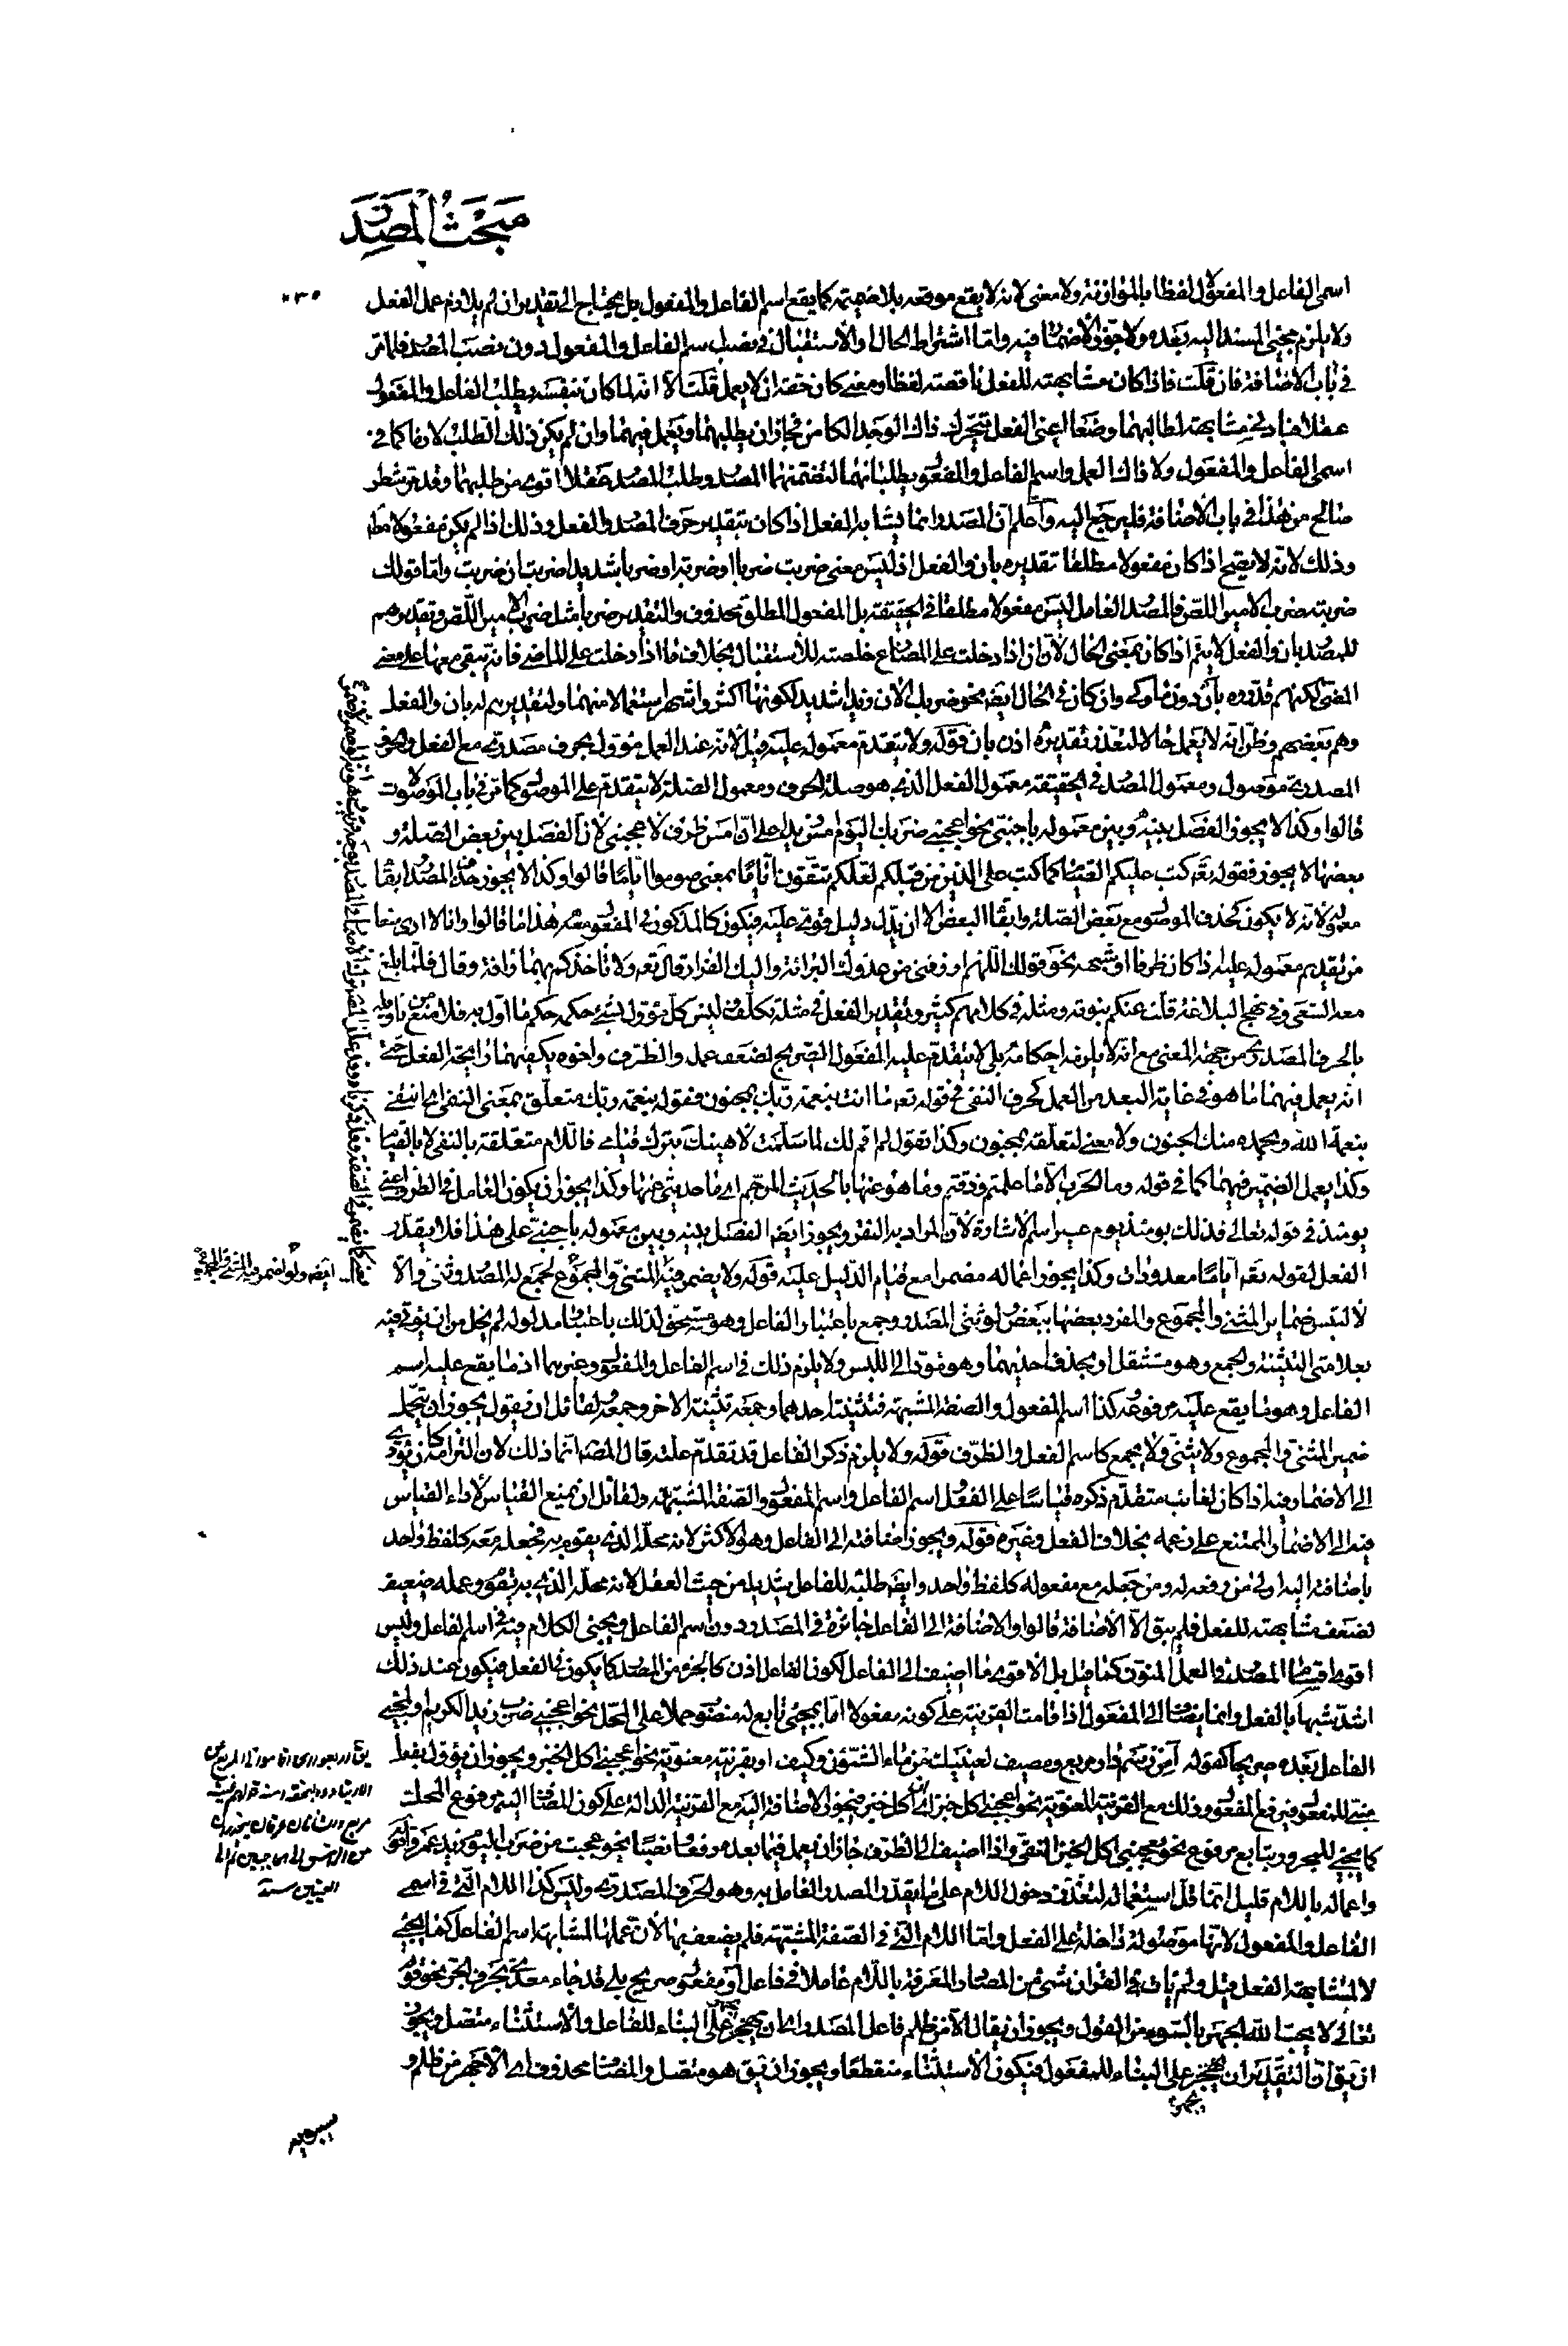 مبحث المصدر
اسمي الفاعل والمفعول لفظا بالموازنة ولا معنى لانه لا يقع موقعه بلا ضميمة كما يقع اسم الفاعل والمفعول بل يحتاج الى تقدير ان لم يلازم عمل الفعل
ولا يلزم مجيئ المسند اليه بعده ولا جوز الاضمار فيه واما اشتراط الحال او الاستقبال في نصب اسم الفاعل والمفعول دون نصب المصدر فلما مر
في باب الاضافة فان قلت فاذا كان مشابهته للفعل ناقصة لفظا ومعنى كان حقه ان لا يعمل قلت الا انه لما كان بنفسه يطلب الفاعل والمفعول
عقلا فبادنى مشابهة لطالبهما وضعا اعني الفعل تتحرك ذاك الوجد الكامن فجاز ان يطلبهما ويعمل فيهما وان لم يكن ذلك الطلب لازما كما في
اسمي الفاعل والمفعول ولا ذاك العمل واسم الفاعل والمفعول يطلبانهما لتضمنهما المصدر وطلب المصدر عقلا اقوى من طلبهما وقد مر شطر
صالح من هذا في باب الاضافة فليرجع اليه واعلم ان المصدر انما يشابه الفعل اذا كان بتقدير حرف المصدر والفعل وذلك اذا لم يكن مفعولا مط
وذلك لانه لا يصح اذا كان مفعولا مطلقا تقديره بان والفعل اذ ليس معنى ضربت ضربا او ضربة او ضربا شديدا ضربت ان ضربت واما قولك
ضربته ضرب الامير اللص فالمصدر العامل ليس مفعولا مطلقا في الحقيقة بل المفعول المطلق محذوف والتقدير ضربا مثل ضرب الامير اللص وتقديرهم
للمصدر بان والفعل لا يتم اذا كان بمعنى الحال لان ان اذا دخلت على المضارع خلصته للاستقبال بخلاف ما اذا دخلت على الماضي فانه يبقى معها على معنى
المضي لكنهم قدروه بان دون ما وكي وان كان في الحال ايضا نحو ضربك الان زيدا شديد لكونها اكثر واشهر استعمالا منهما ولتقديرهم له بان والفعل
وهم بعضهم وظن انه لا يعمل حالا لتعذر تقديره اذن بان قوله ولا يتقدم معموله عليه قيل لانه عند العمل مؤول بحرف مصدري مع الفعل والحرف
المصدري موصول ومعمول المصدر في الحقيقة معمول الفعل الذي هو صلة الحرف ومعمول الصلة لا يتقدم على الموصول كما مر في باب الموصولات
قالوا وكذا لا يجوز الفصل بينه وبين معموله باجنبي نحو اعجبني ضربك اليوم امس زيدا على ان امس ظرف لاعجبني لان الفصل بين بعض الصلة و
بعضها لا يجوز فقوله تعه كتب عليكم الصيام كما كتب على الذين من قبلكم لعلكم تتقون اياما بمعنى صوموا اياما قالوا وكذا لا يجوز حذف المصدر وابقاء
معموله لانه لا يكون كحذف الموصول مع بعض الصلة وابقاء البعض الا ان يدل دليل قوي عليه فيكون كالمذكور في المفعول معه هذا ما قالوا وانا لا ارى منعا
من تقديم معموله عليه اذا كان ظرفا او شبهه نحو قولك اللهم ارزقني من عدوك البراءة واليك الفرار قال تعه ولا تأخذكم بهما رأفة وقال فلما بلغ
معه السعي وفي نهج البلاغة قلت عنكم نبوته ومثله في كلامهم كثير وتقدير الفعل في مثله تكلف وليس كل مؤول بشئ حكمه حكم ما اول به فلا منع من تاويله
بالحرف المصدري من جهة المعنى مع انه لا يلزمه احكامه بلى لا يتقدم عليه المفعول الصريح لضعف عمله والظرف واخوه يكفيهما رايحة الفعل حتى
انه يعمل فيهما ما هو في غاية البعد من العمل كحرف النفي في قوله تعه ما انت بنعمة ربك بمجنون فقوله بنعمة ربك متعلق بمعنى النفي اي انتفى
بنعمة الله وبحمده منك الجنون ولا معنى لتعلقه بمجنون وكذا تقول لم اقم لك لما سلمت لاهينك بترك قيامي فاللام متعلقة بالنفي لا بالقيام
وكذا يعمل الضمير فيهما كما في قوله وما الحرب الا ما علمتم وذقتم وما هو عنها بالحديث المرجم اي ما حديثي عنها وكذا يجوز ان يكون العامل في الظرف اعني
يومئذ في قوله تعالى فذلك يومئذ يوم عسير اسم الاشارة لان المراد به النقر ويجوز ايضا الفصل بينه وبين معموله باجنبي على هذا فلا يقدر
الفعل لقوله تعه اياما معدودات وكذا يجوز اعماله مضمرا مع قيام الدليل عليه قوله ولا يضمر فيه المثنى والمجموع لجمع له المصدر وثني والا
لالتبس ضماير المثنى والمجموع والمفرد بعضها ببعض لو ثني المصدر وجمع باعتبار الفاعل وهو مستحق لذلك باعتبار مدلوله لم يخل من ان يؤتى فيه
بعلامتي التثنية والجمع وهو مستثقل او يحذف احديهما وهو مؤد الى اللبس ولا يلزم ذلك في اسم الفاعل والمفعول وغيرهما اذ ما يقع عليه اسم
الفاعل وهو ما يقع عليه مرفوعه كذا اسم المفعول والصفة المشبهة فتثنية احدهما وجمعه تثنية الاخر وجمعه لقائل ان يقول يجوز ان يتحمل
ضمير المثنى والمجموع ولا يثنى ولا يجمع كاسم الفعل والظرف قوله ولا يلزم ذكر الفاعل قد تقدم علته قال المصه انما ذلك لان التزامه كان يؤدي
الى الاضمار فيه اذا كان لغائب متقدم ذكره قياسا على الفعل واسم الفاعل واسم المفعول والصفة المشبهة ولقائل ان يمنع القياس لاداء القياس
فيه الى الاضمار الممتنع على زعمه بخلاف الفعل وغيره قوله ويجوز اضافته الى الفاعل وهو الاكثر لانه محله الذي يقوم به فجعله معه كلفظ واحد
باضافته اليه اولى من رفعه له ومن جعله مع مفعوله كلفظ واحد وايضا طلبه للفاعل شديد من حيث العقل لانه محله الذي به تقوم وعمله ضعيف
لضعف مشابهته للفعل فلم يبق الا الاضافة قالوا والاضافة الى الفاعل جائزة في المصدر دون اسم الفاعل ويجئ الكلام فيه في اسم الفاعل وليس
اقوى اقسام المصدر في العمل المنون كما قيل بل الاقوى ما اضيف الى الفاعل لكون الفاعل اذن كالجزء من المصدر كما يكون في الفعل فيكون عند ذلك
اشد شبها بالفعل وانما يضاف الى المفعول اذا قامت القرينة على كونه مفعولا اما بمجيئ تابع له منصوب حملا على المحل نحو اعجبني ضرب زيد الكريم او بمجيئ
الفاعل بعده صريحا كقوله امن رسم دار مربع ومصيف لعينيك من ماء الشئون وكيف او بقرينة معنوية نحو اعجبني اكل الخبز ويجوز ان يؤول بفعل
مبني للمفعول فيرفع المفعول وذلك مع القرينة المعنوية نحو اعجبني اكل خبز
كما يجئ للمجرور بتابع مرفوع نحو يعجبني اكل الخبز النقي واذا اضيف الى الظرف جاز ان يعمل فيما بعده رفعا ونصبا نحو عجبت من ضرب اليوم زيد عمرا قوله
واعماله باللام قليل انما قل استعماله لتعذر دخول اللام على ما يقدر المصدر العامل به وهو الحرف المصدري وليس كذا اللام التي في اسمي
الفاعل والمفعول لانها موصولة داخلة على الفعل واما اللام التي في الصفة المشبهة فلم يضعف بها لان عملها لمشابهة اسم الفاعل كما يجئ
لا لمشابهة الفعل قيل ولم يات في القران شئ من المصادر المعرفة باللام عاملا في فاعل او مفعول صريح بلى قد جاء معدى بحرف الجر نحو قوله
تعالى لا يحب الله الجهر بالسوء من القول ويجوز ان يقال الا من ظلم فاعل المصدر اي ان يجهر على البناء للفاعل والاستثناء متصل ويجوز
ان يق ان التقدير ان يجهر على البناء للمفعول فيكون الاستثناء منقطعا ويجوز ان يق هو متصل والمضاف محذوف اي الا جهر من ظلم و
سيبويه